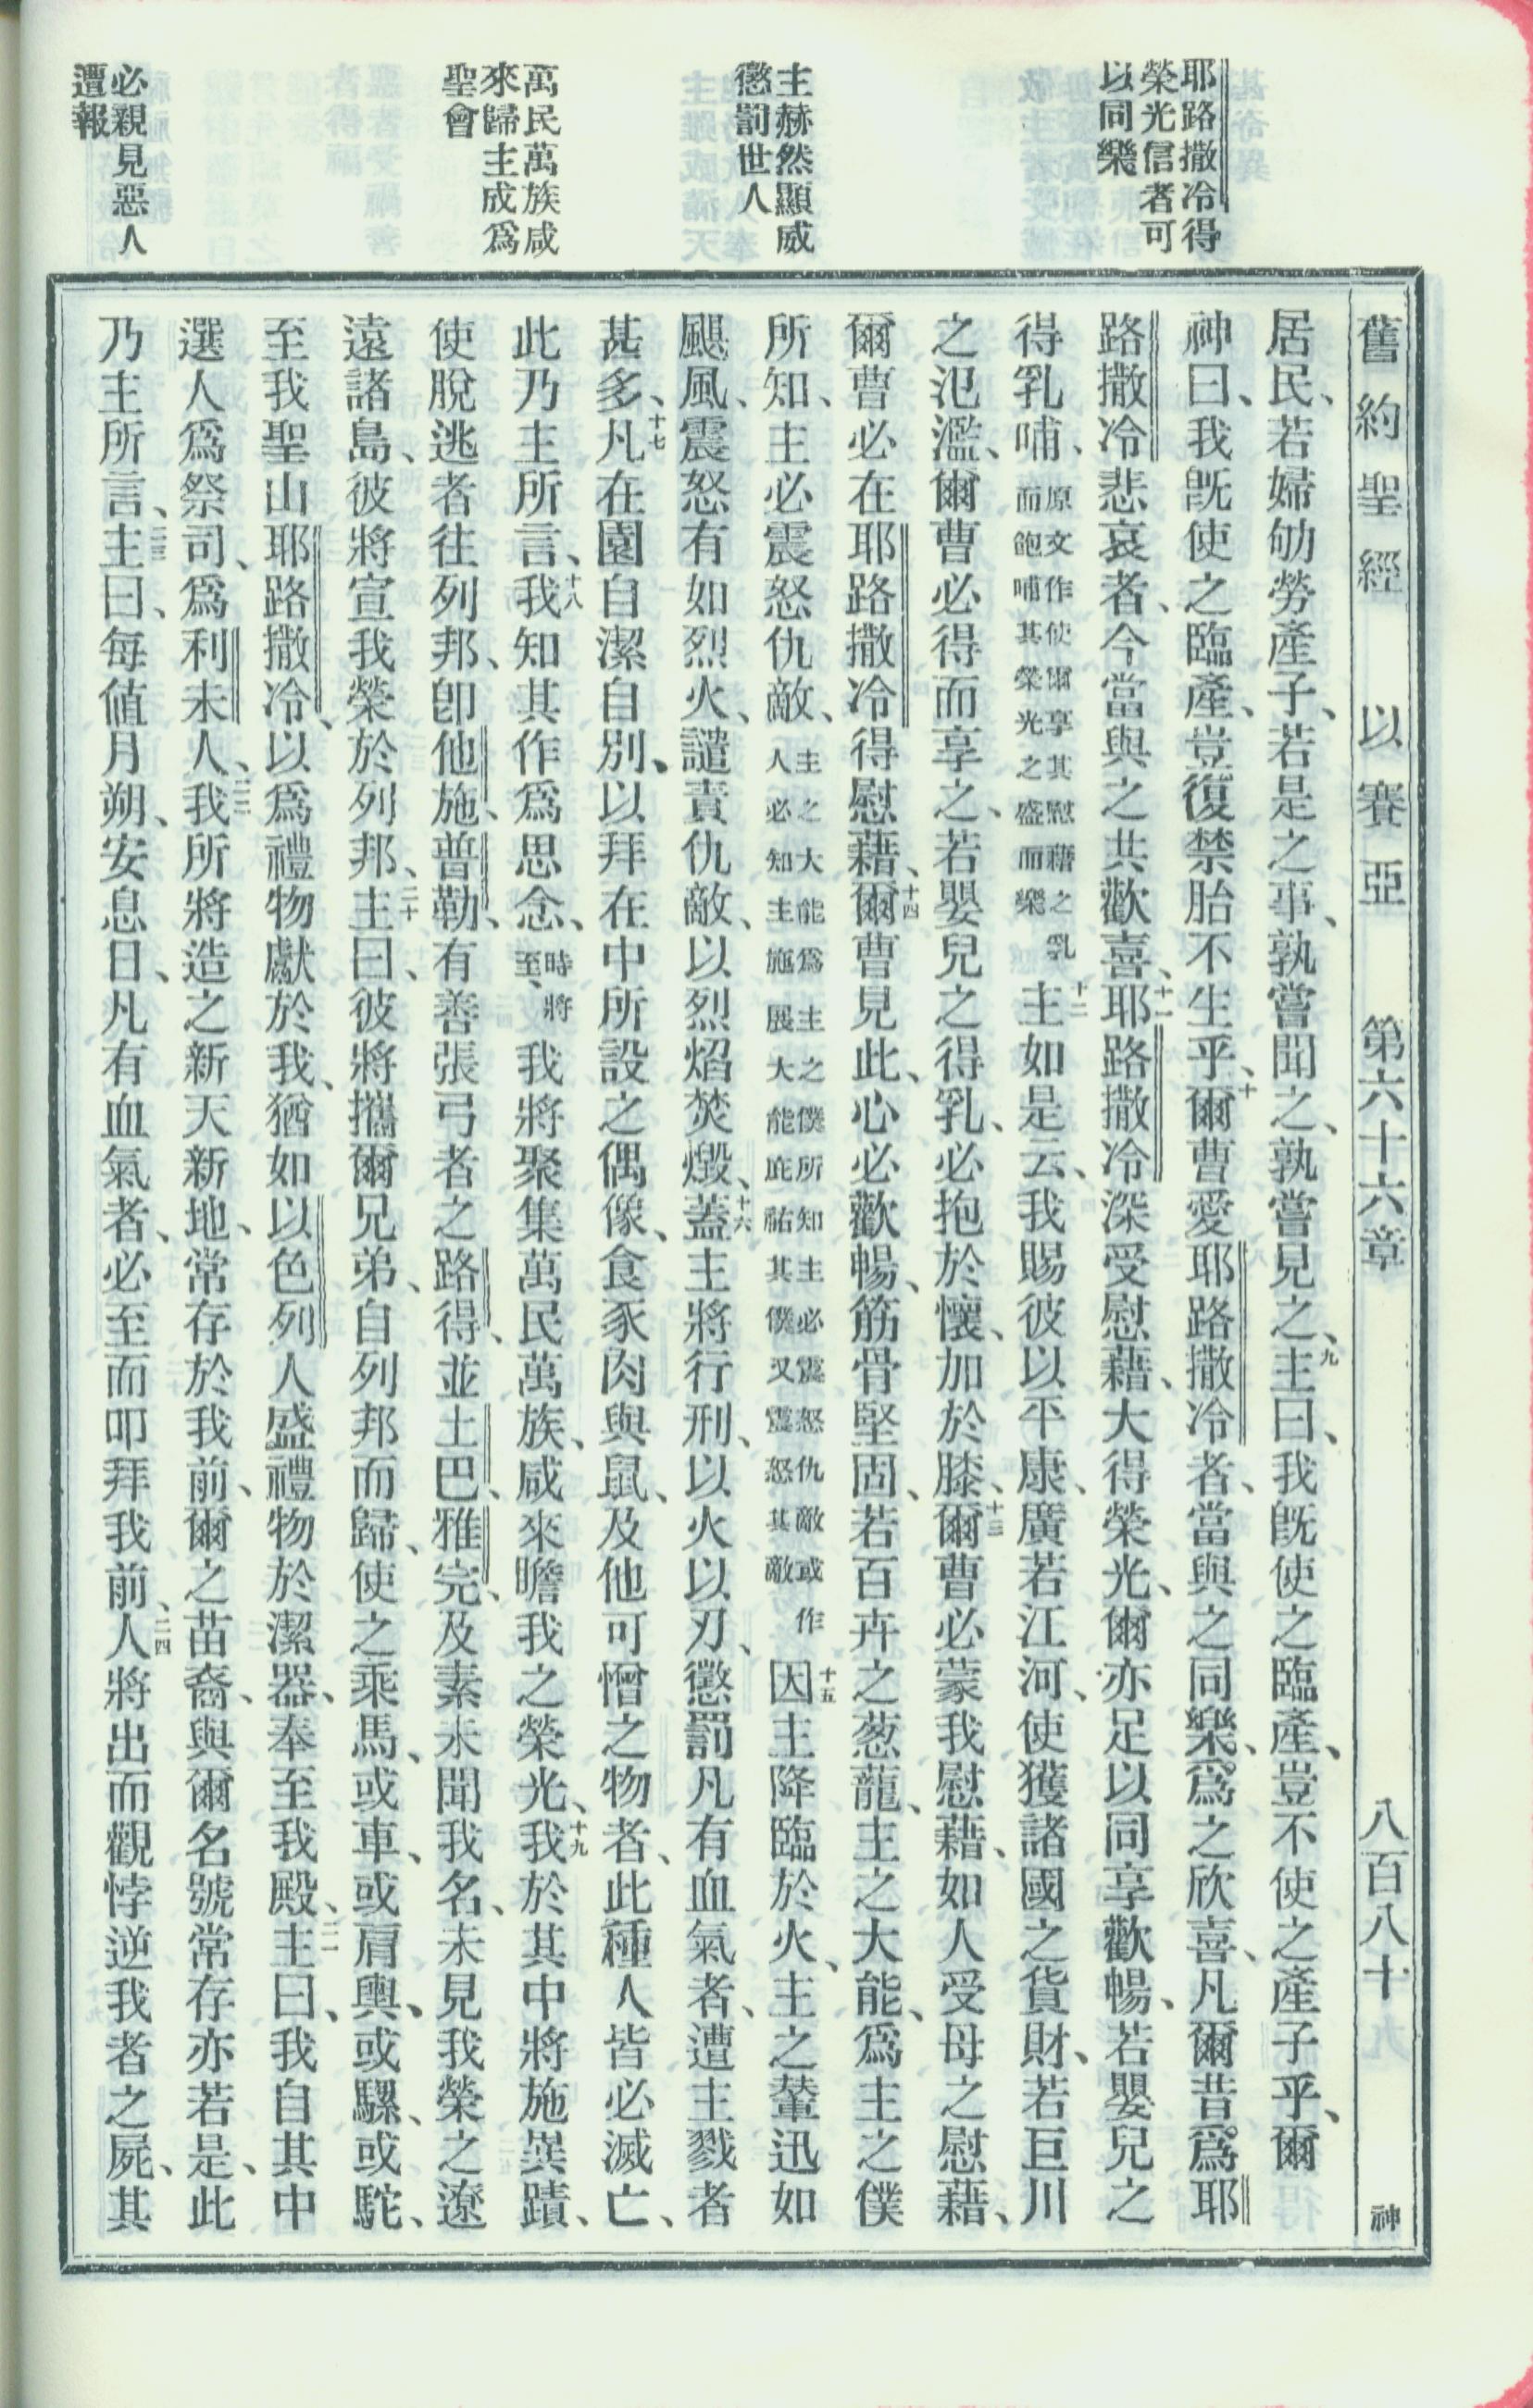 舊約聖經　以賽亞　第六十六章　八百八十　神
耶路撒冷得
榮光信者可
以同樂
主赫然顯威
懲罰世人
萬民萬族咸
來歸主成爲
聖會
必親見惡人
遭報
居民、若婦劬勞產子、若是之事、孰嘗聞之、孰嘗見之、九主曰、我旣使之臨產、豈不使之產子乎、爾
神曰、我旣使之臨產、豈復禁胎不生乎、十爾曹愛耶路撒冷者、當與之同樂、爲之欣喜、凡爾昔爲耶
路撒冷悲哀者、今當與之共歡喜、十一耶路撒冷深受慰藉、大得榮光、爾亦足以同享歡暢、若嬰兒之
得乳哺、原文作使爾享其慰藉之乳而飽哺其榮光之盛而樂十二主如是云、我賜彼以平康、廣若江河、使獲諸國之貨財、若巨川
之氾濫、爾曹必得而享之、若嬰兒之得乳、必抱於懷、加於膝、十三爾曹必蒙我慰藉、如人受母之慰藉、
爾曹必在耶路撒冷得慰藉、十四爾曹見此、心必歡暢、筋骨堅固、若百卉之葱蘢、主之大能、爲主之僕
所知、主必震怒仇敵、主之大能爲主之僕所知主必震怒仇敵或作人必知主施展大能庇祐其僕又震怒其敵十五因主降臨於火、主之輦迅如
颶風、震怒有如烈火、譴責仇敵、以烈焰焚燬、十六蓋主將行刑、以火以刃、懲罰凡有血氣者、遭主戮者
甚多、十七凡在園自潔自別、以拜在中所設之偶像、食豕肉與鼠、及他可憎之物者、此種人皆必滅亡、
此乃主所言、十八我知其作爲思念、時將至、我將聚集萬民萬族、咸來瞻我之榮光、十九我於其中將施異蹟、
使脫逃者往列邦、卽他施、普勒、有善張弓者之路得、並土巴、雅完、及素未聞我名、未見我榮之遼
遠諸島、彼將宣我榮於列邦、二十主曰、彼將攜爾兄弟、自列邦而歸、使之乘馬、或車、或肩輿、或騾、或駝、
至我聖山耶路撒冷、以爲禮物獻於我、猶如以色列人盛禮物於潔器、奉至我殿、二一主曰、我自其中
選人爲祭司、爲利未人、二二我所將造之新天新地、常存於我前、爾之苗裔、與爾名號常存亦若是、此
乃主所言、二三主曰、每値月朔、安息日、凡有血氣者、必至而叩拜我前、二四人將出而觀悖逆我者之屍、其